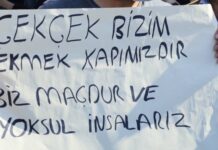 ÇEKÇEK BİZİM
EKMEK KAPIMIZDIR
BİZ MAĞDUR VE
YOKSUL İNSALARIZ